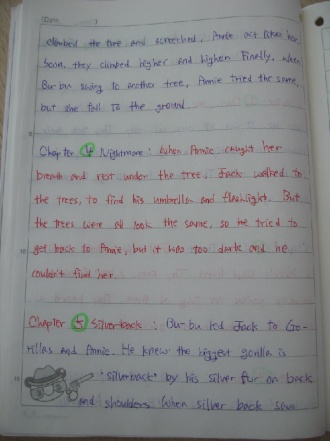 (Date
climbed the tree and screeched, Annie act likes her.
Soon, they climbed higher and higher. Finally, when
Bu-bu swing to another tree, Annie tried the same,
but she fall to the ground.
5
Chapter 4 Nightmare : When Annie caught her
breath and rest under the tree, Jack walked to
the trees, to find his umbrella and flashlight. But
the trees were all look the same, so he tried to
10
get back to Annie, but it was too dark and he
couldn't find her.
Chapter 5 Silverback : Bu-bu led Jack to Go-
rillas and Annie. He knew the biggest gorilla is
15
"silverback" by his silver fur on back
and shoulders. When silver back saw